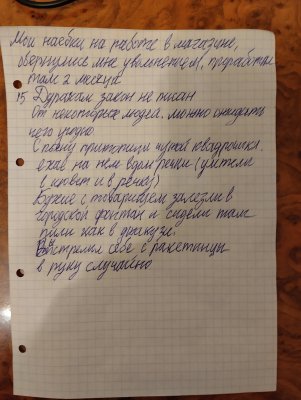 Мои наебки на работе в магазине,
обернулись мне увольнением, проработал
там 2 месяца
15 Дуракам закон не писан
От некоторых людей, можно ожидать
чего угодно
С пацу притупици кутой квадрошка,
ехав на нем вдоль речки (улетели
в кювет и в речку)
Бухие с товарищем залезли в
городской фонтан и сидели там
пили как в джакузи.
Выстрелил себе с ракетницы
в руку случайно